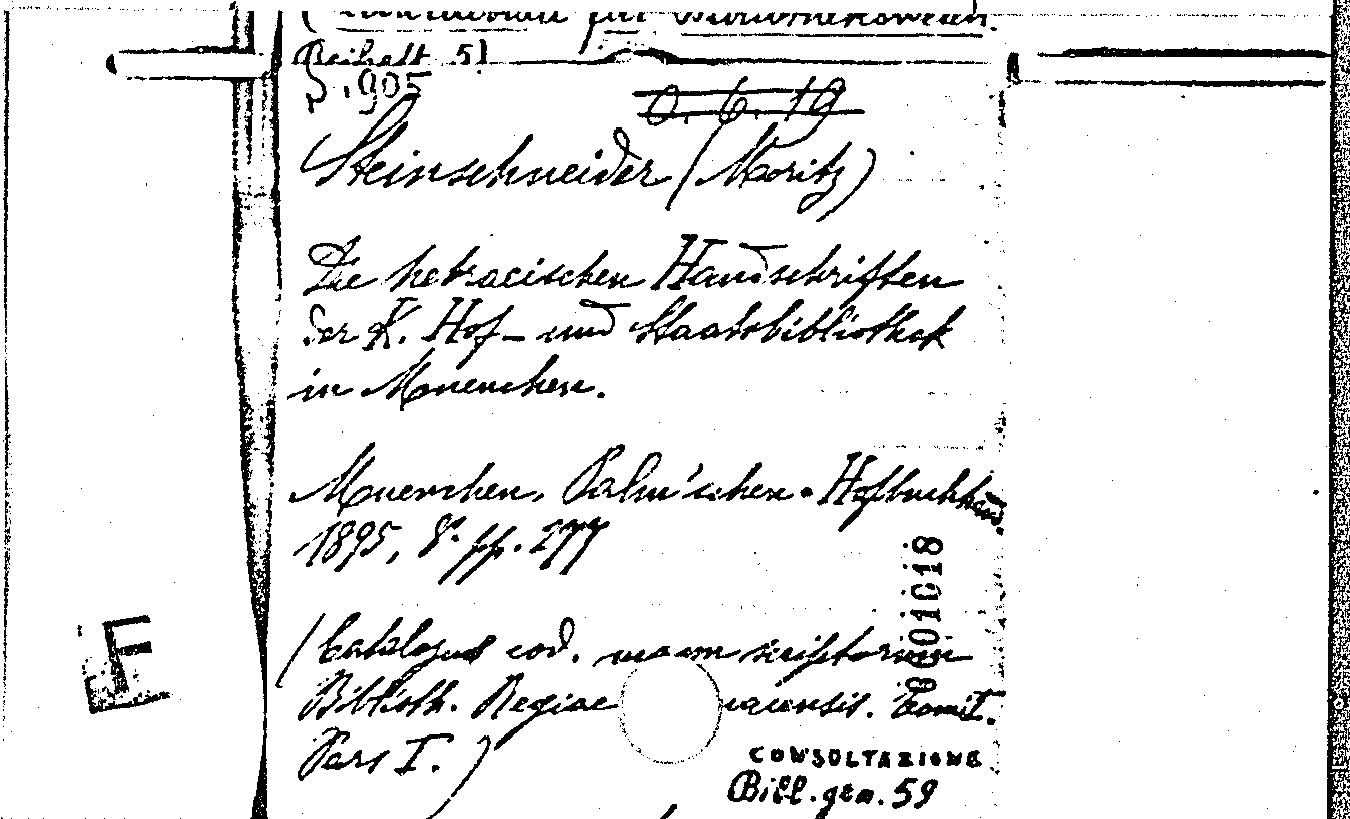 (Centralblatt für Bibliothekswesen.
Beiheft 5)
S. 905
0. 6. 19
Steinschneider (Moritz)
Die hebraeischen Handschriften
der K. Hof- und Staatsbibliothek
in Muenchen.
Muenchen, Palm'schen Hofbuchhand.
1895, 8° pp. 277
(Catalogus cod. manu scriptorum
Biblioth. Regiae acensis. Tomi I.
Pars I.)
01018
CONSULTAZIONE
Bibl. gen. 59
F